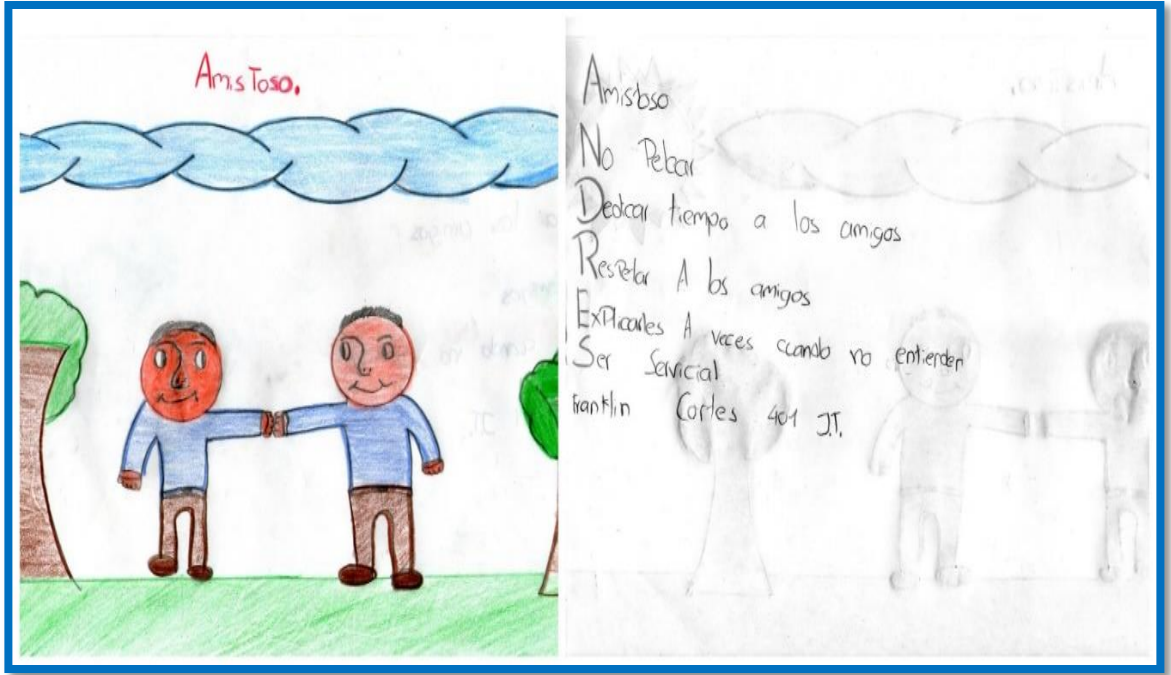 AmisToso.
Amistoso
No Pelear
Dedicar tiempo a los amigos
Respetar A los amigos
Explicarles A veces cuando no entienden
Ser Servicial
Franklin Cortes 401 J.T.